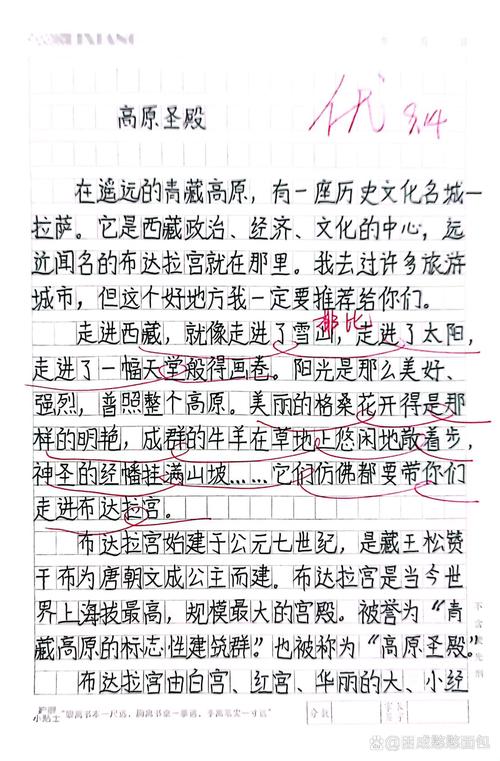 LIXIANG
优 9.14
高原圣殿
在遥远的青藏高原，有一座历史文化名城—
拉萨。它是西藏政治、经济、文化的中心，远
近闻名的布达拉宫就在那里。我去过许多旅游
城市，但这个好地方我一定要推荐给你们。
排比
走进西藏，就像走进了雪山，走进了太阳，
走进了一幅天堂般得画卷。阳光是那么美好、
强烈，普照整个高原。美丽的格桑花开得是那
样的明艳，成群的牛羊在草地上悠闲地散着步，
神圣的经幡挂满山坡……它们仿佛都要带你们
走进布达拉宫。
布达拉宫始建于公元七世纪，是藏王松赞
干布为唐朝文成公主而建。布达拉宫是当今世
界上海拔最高，规模最大的宫殿。被誉为“青
藏高原的标志性建筑群”。也被称为“高原圣殿”。
布达拉宫由白宫、红宫、华丽的大、小经
不含荧光剂
护眼
小贴士
“眼离书本一尺远，胸离书桌一拳远，手离笔尖一寸远”
分数
家长
签字
@王成憨憨面包